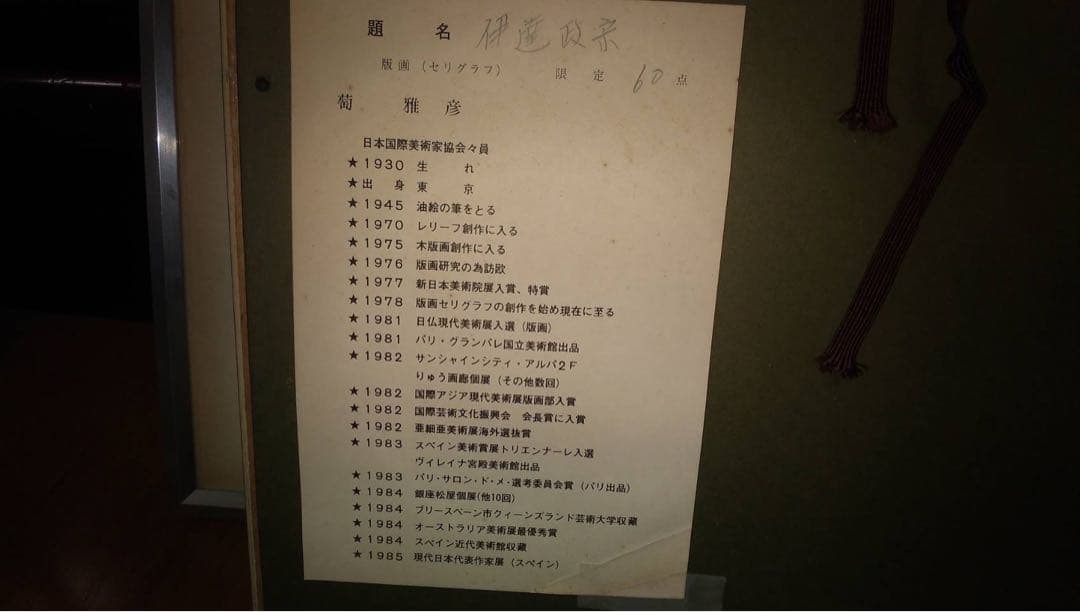 題名 伊達政宗
版画（セリグラフ） 限定 60点
萄 雅彦
日本国際美術家協会々員
★1930 生れ
★出身 東京
★1945 油絵の筆をとる
★1970 レリーフ創作に入る
★1975 木版画創作に入る
★1976 版画研究の為訪欧
★1977 新日本美術院展入賞、特賞
★1978 版画セリグラフの創作を始め現在に至る
★1981 日仏現代美術展入選（版画）
★1981 パリ・グランパレ国立美術館出品
★1982 サンシャインシティ・アルパ2F
りゅう画廊個展（その他数回）
★1982 国際アジア現代美術展版画部入賞
★1982 国際芸術文化振興会 会長賞に入賞
★1982 亜細亜美術展海外選抜賞
★1983 スペイン美術賞展トリエンナーレ入選
ヴィレイナ宮殿美術館出品
★1983 パリ・サロン・ド・メ・選考委員会賞（パリ出品）
★1984 銀座松屋個展(他10回)
★1984 ブリースペーン市クィーンズランド芸術大学収蔵
★1984 オーストラリア美術展最優秀賞
★1984 スペイン近代美術館収蔵
★1985 現代日本代表作家展（スペイン）